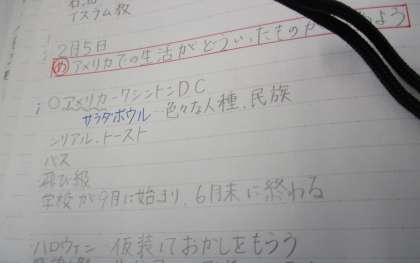 イスラム教
2月5日
め アメリカでの生活がどういったもの
○アメリカ-ワシントンDC
サラダボウル 色々な人種、民族
シリアル、トースト
バス
飛び級
学校が9月に始まり、6月末に終わる
ハロウィン 仮装しておかしをもらう